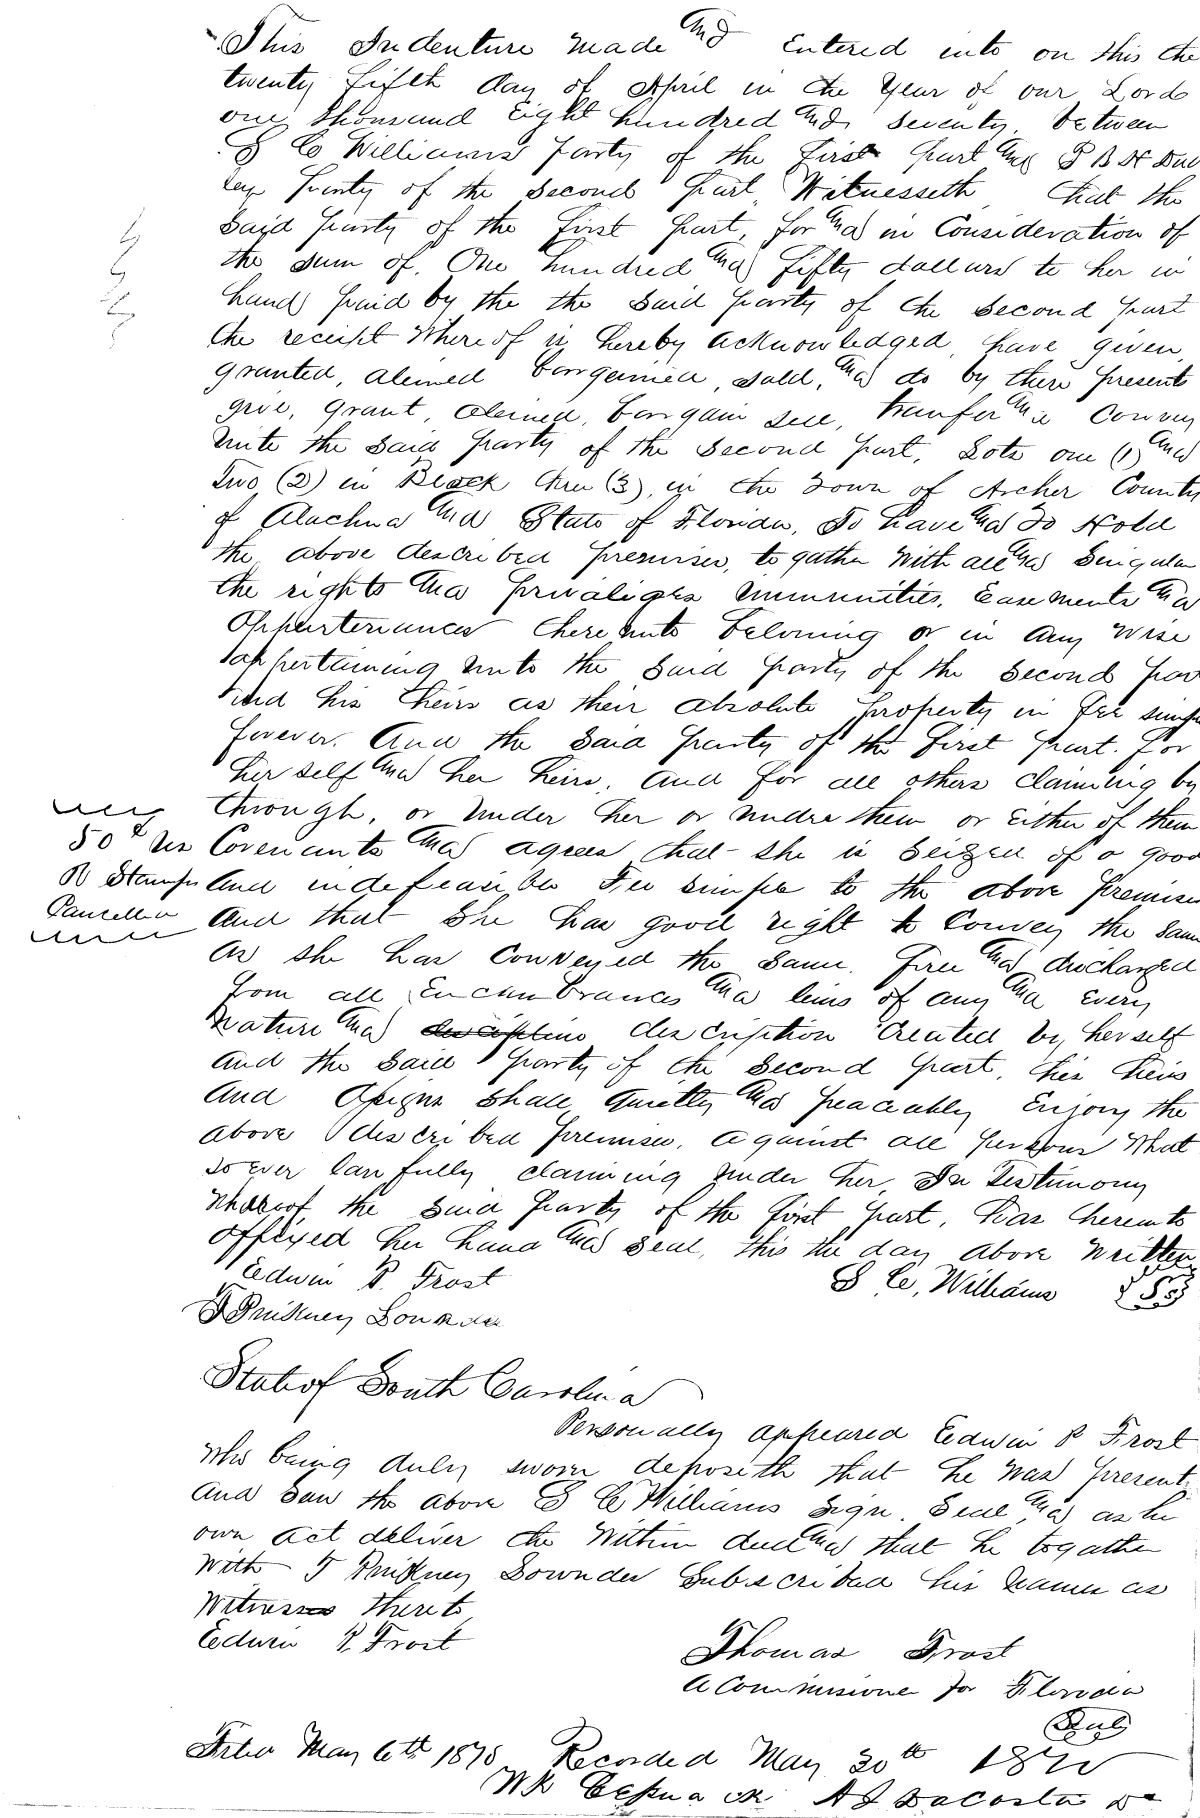 This Indenture made and entered into on this the
twenty fifth day of April in the Year of our Lord
one thousand Eight hundred and seventy, between
S C Williams party of the first part and P B H Dud
ley party of the second part, Witnesseth, that the
said party of the first part, for and in Consideration of
the sum of, One hundred and fifty dollars to her in
hand paid by the the said party of the second part
the receipt Whereof is hereby acknowledged, have given,
granted, aleined bargained, sold, and do by these presents
give, grant, aleined, bargain sell, transfer and convey
Unto the said party of the second part, Lots one (1) and
Two (2) in Block three (3), in the Town of Archer County
of Alachua and State of Florida, To have and To Hold
the above described premises, to gather With all and Singular
the rights and privaliges immunities, Easements and
Appurtenances thereunto beloning or in any Wise
appertaining unto the said party of the second par
and his heirs as their absolute property in fee simple
forever. And the said party of the first part. for
her self and her heirs, and for all others claiming by
through, or under her or under them or Either of them
Covenants and agrees that she is Seized of a good
And indefeasible Fee simple to the above premises
And that She has good right to Convey the same
As she has Conveyed the same. Free and discharged
from all Encumbrances and leins of any and Every
Nature and description created by herself
And the said party of the second part, his heirs
And Assigns shall, quietly and peaceably Enjoy the
above described premises, against all persons What
soever lawfully claiming under her, In Testimony
Whereof the said party of the first part, has hereunto
affixed her hand and seal, this the day above written
50 cts
R Stamps
Cancelled
Edwin P. Frost S C, Williams
T Pinkney Lowndes
State of South Carolina
Personally appeared Edwin P Frost
Who being duly sworn deposeth that he was present,
And saw the above S C Williams sign. Seal and as he
own act deliver the Within deed and that he togather
With T Pinkney Lowndes Subscribed his name as
Witness thereto
Edwin P. Frost
Thomas Frost
A Commissioner for Florida
Seal
Filed May 6th 1870 Recorded May 30th 1870
A J DaCosta